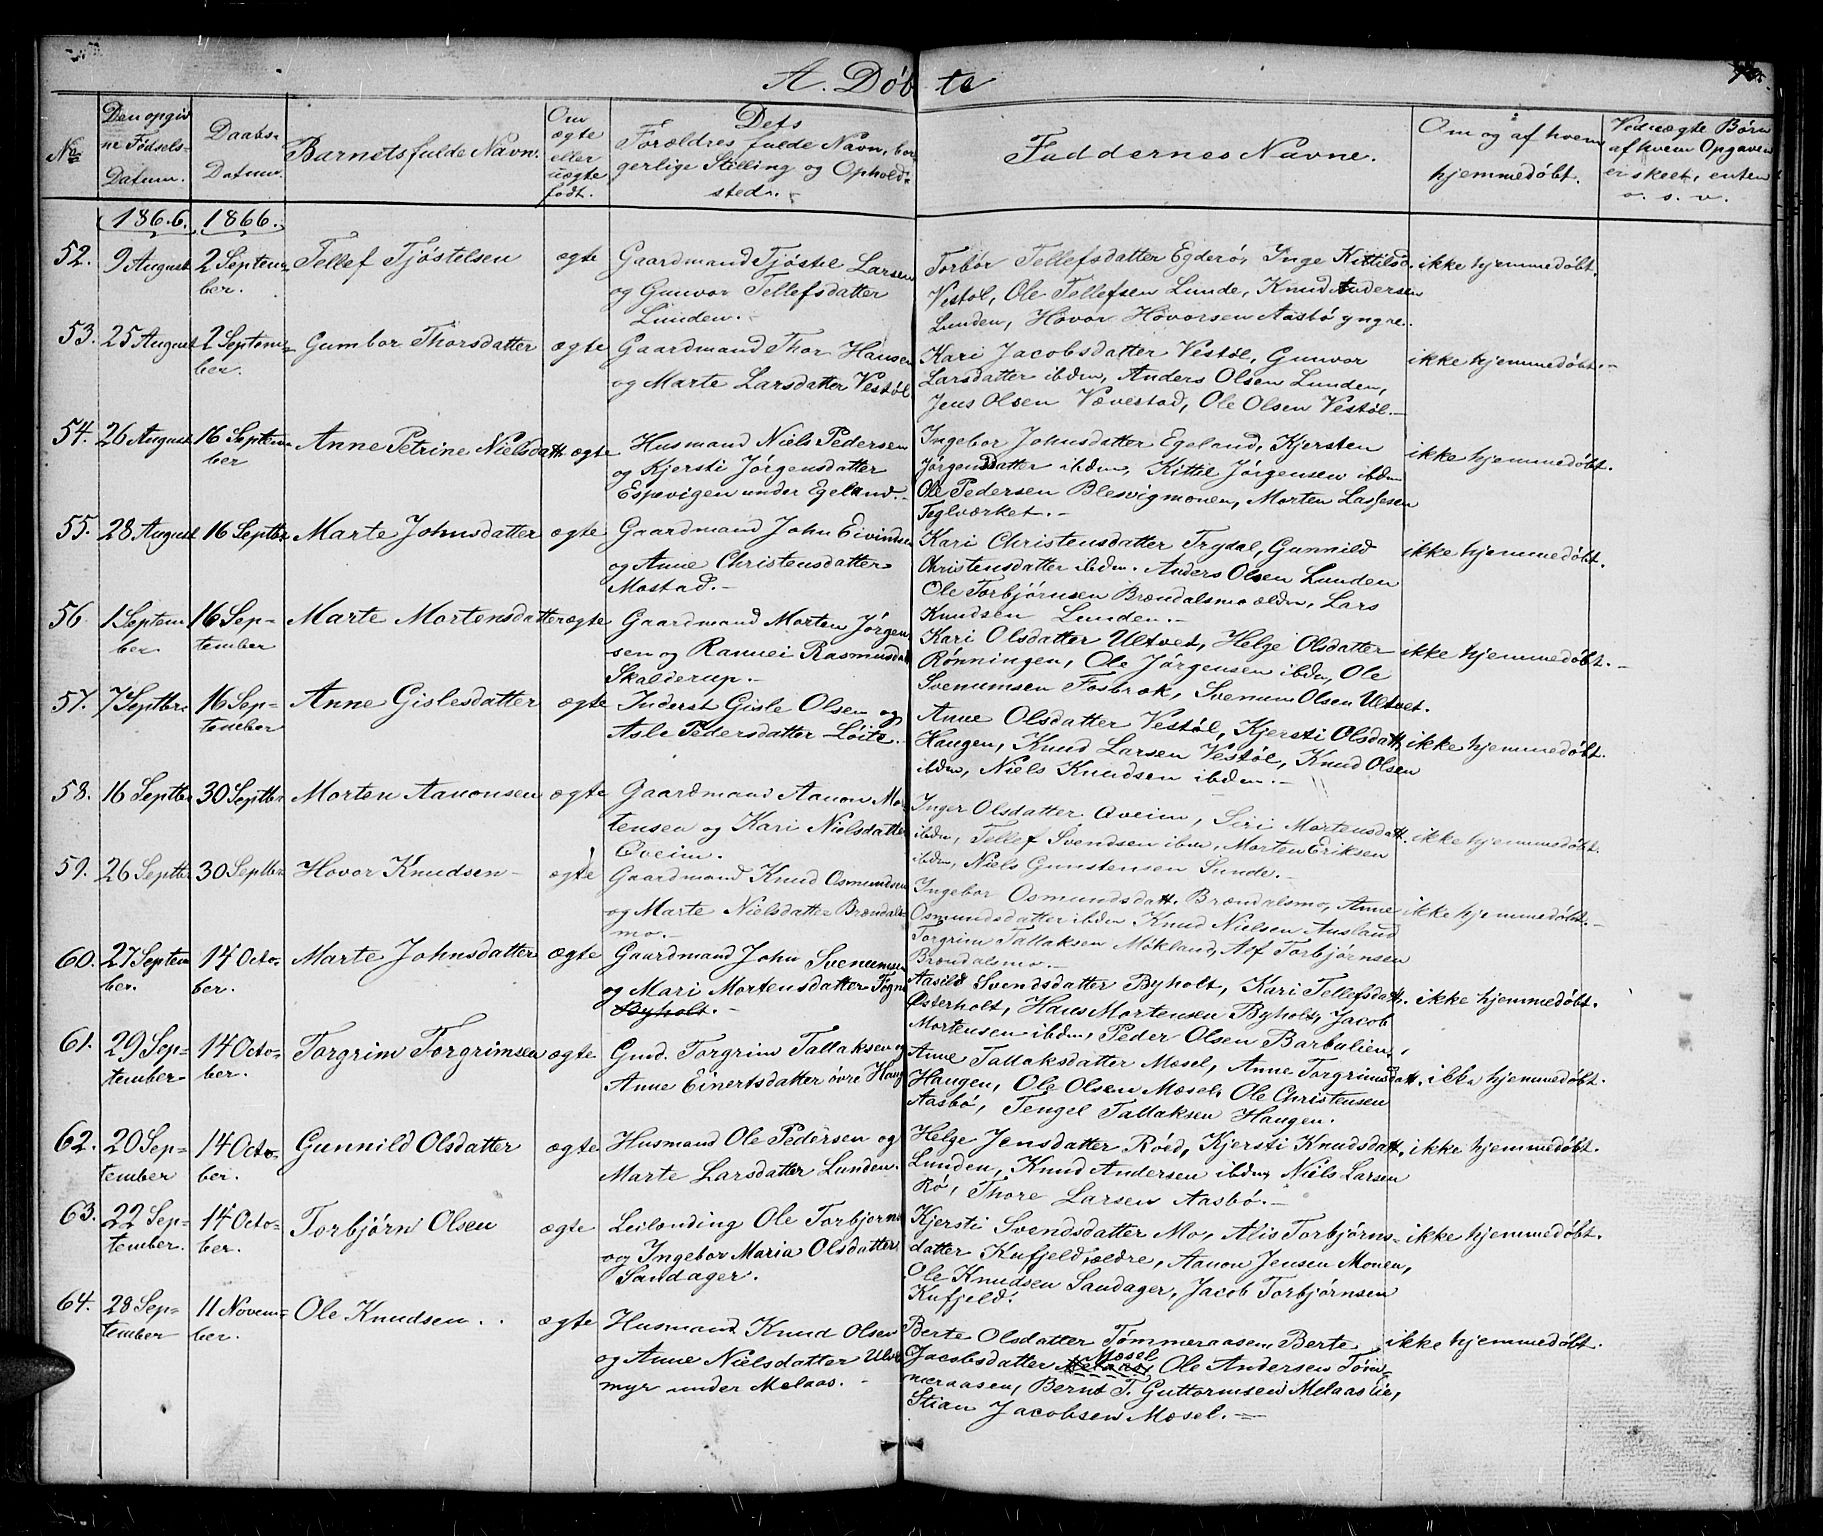 A. Døbte
No
Den opgivne Fødsels-Datum.
Daabs-Datum.
Barnets fulde Navn.
Om ægte eller uægte født.
Dets Forældres fulde Navn, borgerlige Stilling og Opholdsted.
Faddernes Navne.
Om og af hvem hjemmedøbt.
Ved uægte Børn af hvem Opgaven er skeet, enten o. s. v.
1866. 1866.
52. 9 August 2 September. Tellef Tjøstelsen ægte
Gaardmand Tjøstel Larsen
og Gunvor Tellefsdatter
Lunden.
Torbor Tellefsdatter Egderö, Inge Kittilsd.
Vestøl, Ole Tellefsen Lunde, Knud Andersen
Lunden, Hovor Hovorsen Aasbö yngre.
ikke hjemmedøbt.
53. 25 August 2 September. Gumbor Thorsdatter ægte
Gaardmand Thor Hansen
og Marte Larsdatter Vestøl
Kari Jacobsdatter Vestøl, Gunvor
Larsdatter ibdm, Anders Olsen Lunden,
Jens Olsen Vævestad, Ole Olsen Vestøl.
ikke hjemmedøbt.
54. 26 August 16 September Anne Petrine Nielsdatt ægte
Husmand Niels Pedersen
og Kjersti Jörgensdatter
Espevigen under Egeland.
Ingebor Johnsdatter Egeland, Kjersten
Jörgensdatter ibdm, Kittil Jörgensen ibdm
Ole Pedersen Blesvigmonen, Morten Lassesen
Teglværket.
ikke hjemmedøbt.
55. 28 August 16 Septbr Marte Johnsdatter ægte
Gaardmand John Eivindsen
og Anne Christensdatter
Mostad.
Kari Christensdatter Trydal, Gunnild
Christensdatter ibdm. Anders Olsen Lunden
Ole Torbjörnsen Brændalsmo ældr, Lars
Knudsen Lunden.
ikke hjemmedøbt.
56. 1 September 16 September Marte Mortensdatter ægte
Gaardmand Morten Jörgen
sen og Ranuei Rasmusdatt
Skalderup.
Kari Olsdatter Ultvet, Helge Olsdatter
Rønningen, Ole Jörgensen ibdm, Ole
Svenumsen Fosbrok, Svenum Olsen Ultvet.
ikke hjemmedøbt.
57. 7 Septbr 16 September Anne Gislesdatter ægte
Inderst Gisle Olsen og
Asle Pedersdatter Löite.
Anne Olsdatter Vestøl, Kjersti Olsdatt.
Haugen, Knud Larsen Vestøl, Knud Olsen
ibdm, Niels Knudsen ibdm.
ikke hjemmedøbt.
58. 16 Septbr 30 Septbr Morten Aanonsen ægte
Gaardmand Aanon Mor-
tensen og Kari Nielsdatter
Oveim.
Inger Olsdatter Oveim, Siri Mortensdatt.
ibdm, Tellef Svendsen ibdm, Morten Eriksen
ibdm, Niels Gunstensen Sunde.
ikke hjemmedøbt.
59. 26 Septbr 30 Septbr Hovor Knudsen ægte
Gaardmand Knud Osmundsen
og Marte Nielsdatter Brændals-
mo.
Ingebor Osmundsdatt. Brændalsmo, Anne
Osmundsdatter ibdm Knud Nielsen Ausland
Torgrim Tallaksen Mökland, Asf Torbjörnsen
Brændalsmo.
ikke hjemmedøbt.
60. 27 September. 14 October. Marte Johnsdatter ægte
Gaardmand John Svenumsen
og Mari Mortensdatter Togne
Byholt.
Aasild Svendsdatter Byholt, Kari Tellefsdatt.
Østerholt, Hans Mortensen Byholt, Jacob
Mortensen ibdm, Peder Olsen Barbulien.
ikke hjemmedøbt.
61. 29 September 14 October. Torgrim Torgrimsen ægte
Gmd. Torgrim Tallaksen og
Anne Einertsdatter övre Haug
Anne Tallaksdatter Mosel, Anne Torgrimsdatt.
Haugen, Ole Olsen Mæsel, Ole Christensen
Aasbö, Tengel Tallaksen Haugen.
ikke hjemmedøbt.
62. 20 September 14 October. Gunnild Olsdatter ægte
Husmand Ole Pedersen og
Marte Larsdatter Lunden.
Helge Jensdatter Röed, Kjersti Knudsdatt.
Lunden, Knud Andersen ibdm, Niels Larsen
Rö, Thore Larsen Aasbö.
ikke hjemmedøbt.
63. 22 September. 14 October. Torbjörn Olsen ægte
Leilænding Ole Torbjorns
og Ingebor Maria Olsdatter
Sandager.
Kjersti Svendsdatter Mo, Alis Torbjörns-
datter Kufjeld ældre, Aanon Jensen Monen,
Ole Knudsen Sandager, Jacob Torbjörnsen
Kufjeld.
ikke hjemmedøbt.
64. 28 September 11 November. Ole Knudsen ægte
Husmand Knud Olsen
og Anne Nielsdatter Ulve
myr under Melaas.
Berte Olsdatter Tømmeraasen, Berte
Jacobsdatter Mæsel Ole Andersen Tøm-
meraasen, Bernt T. Guttormsen Melaaslie,
Stian Jacobsen Mæsel.
ikke hjemmedøbt.